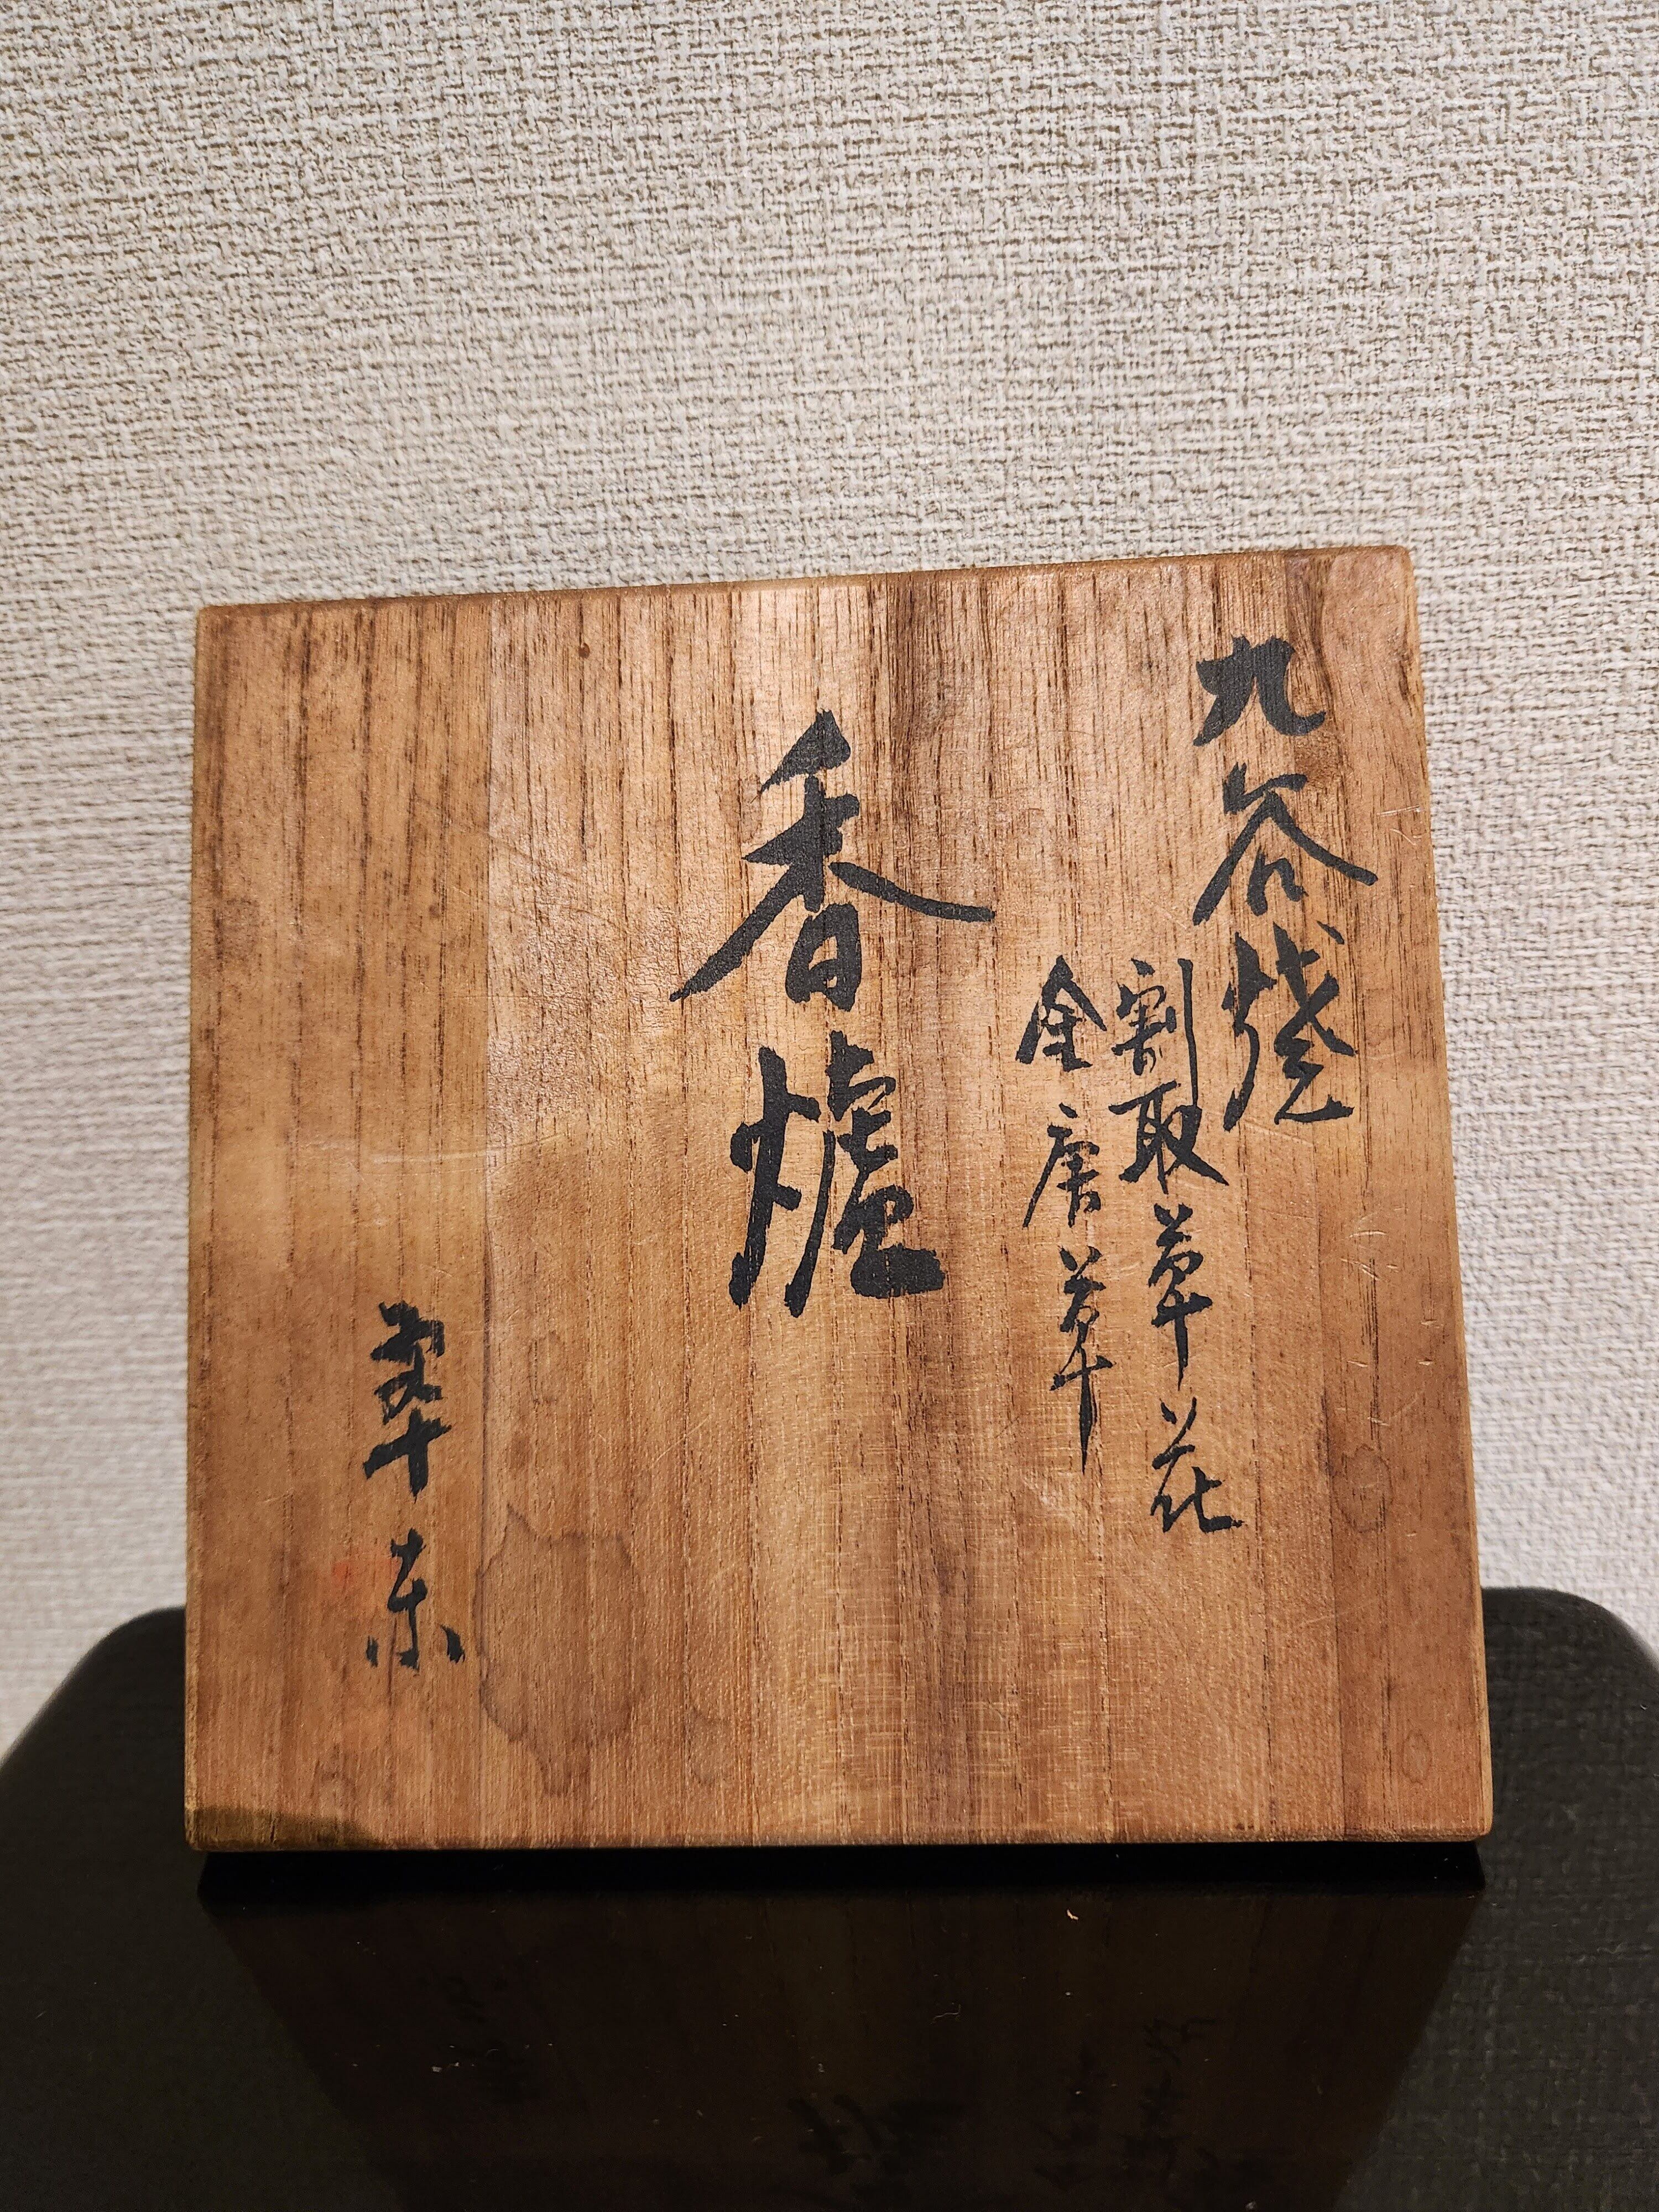 九谷焼
割取草花
金唐草
香爐
翠東